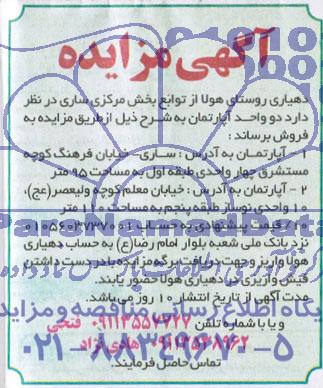 آگهی مزایده
دهیاری روستای هولا از توابع بخش مرکزی ساری در نظر
دارد دو واحد آپارتمان به شرح ذیل از طریق مزایده به
فروش برساند :
۱ - آپارتمان به آدرس : ساری- خیابان فرهنگ کوچه
مستشرق چهار واحدی طبقه اول به مساحت ۹۵ متر
۲ - آپارتمان به آدرس : خیابان معلم کوچه ولیعصر(عج)،
۱۰ واحدی نوساز طبقه پنجم به مساحت ۱۱۰ متر
۱۰٪ قیمت پیشنهادی به حساب ۰۱۰۵۶۰۳۷۳۷۰۰۱
نزد بانک ملی شعبه بلوار امام رضا(ع) به حساب دهیاری
هولا واریز و جهت دریافت برگه مزایده با در دست داشتن
فیش واریزی در دهیاری هولا حضور یابند.
مدت آگهی از تاریخ انتشار ۱۰ روز می‌باشد.
و یا با شماره تلفن ۰۹۱۱۳۵۵۷۷۲۷ فتحی
۰۹۱۱۳۵۳۸۹۶۲ هادی نژاد
تماس حاصل فرمایند.
پایگاه اطلاع رسانی مناقصه و مزایده
۰۲۱-۸۸۳۴۹۶۷۰-۵